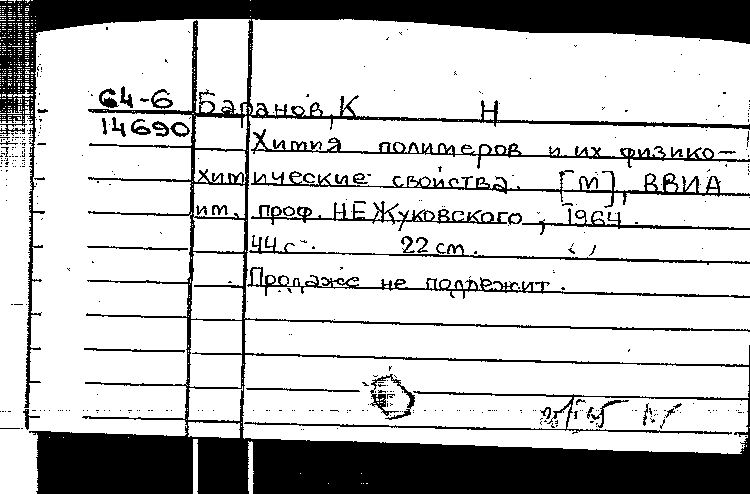 64-6 Баранов, К Н
14690
Химия полимеров и их физико-
химические свойства. [М], ВВИА
им. проф. Н Е Жуковского, 1964.
44 с. 22 см.
Продаже не подлежит.